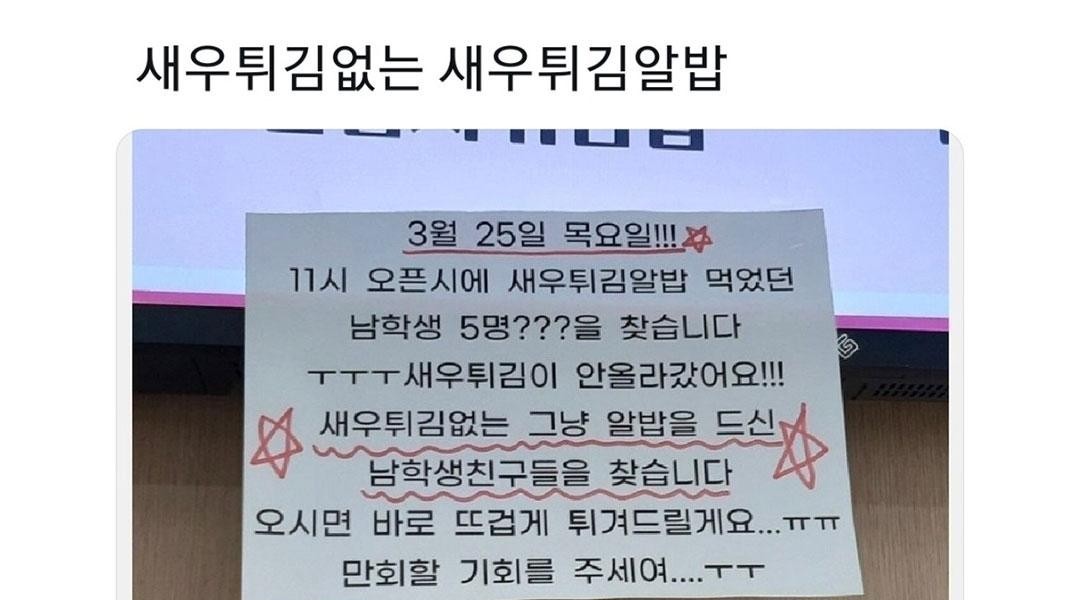 새우튀김없는 새우튀김알밥
3월 25일 목요일!!!
11시 오픈시에 새우튀김알밥 먹었던
남학생 5명???을 찾습니다
ㅜㅜㅜ새우튀김이 안올라갔어요!!!
새우튀김없는 그냥 알밥을 드신
남학생친구들을 찾습니다
오시면 바로 뜨겁게 튀겨드릴게요...ㅠㅠ
만회할 기회를 주세여....ㅜㅜ